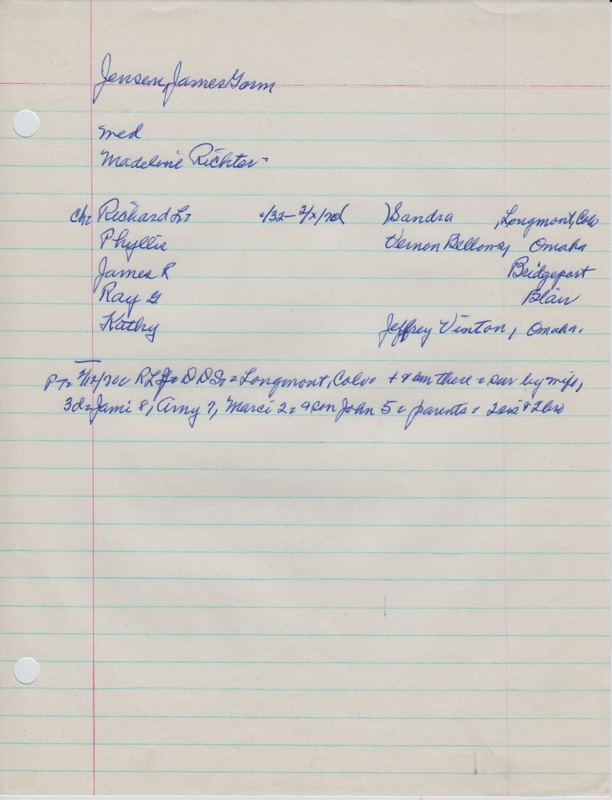 Jensen, James Gorm
med
Madeline Richter
ch: Richard L. Sandra , Longmont, Colo
Phyllis Vernon Bellows, Omaha
James R Bridgeport
Ray G Blair
Kathy Jeffrey Vinton, Omaha.
PT= DDS= Longmont, Colo= + & bur there = sur by wife,
3d= Jami 8, Amy 7, Marci 2= & son John 5= parents= 2 sis & 2 bro